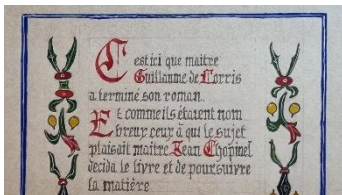 Cest ici que maitre
Guillaume de Lorris
a terminé son roman.
Et comme ils étaient nom
breux ceux à qui le sujet
plaisait maitre Jean Chopinel
decida le livre et de poursuivre
la matière